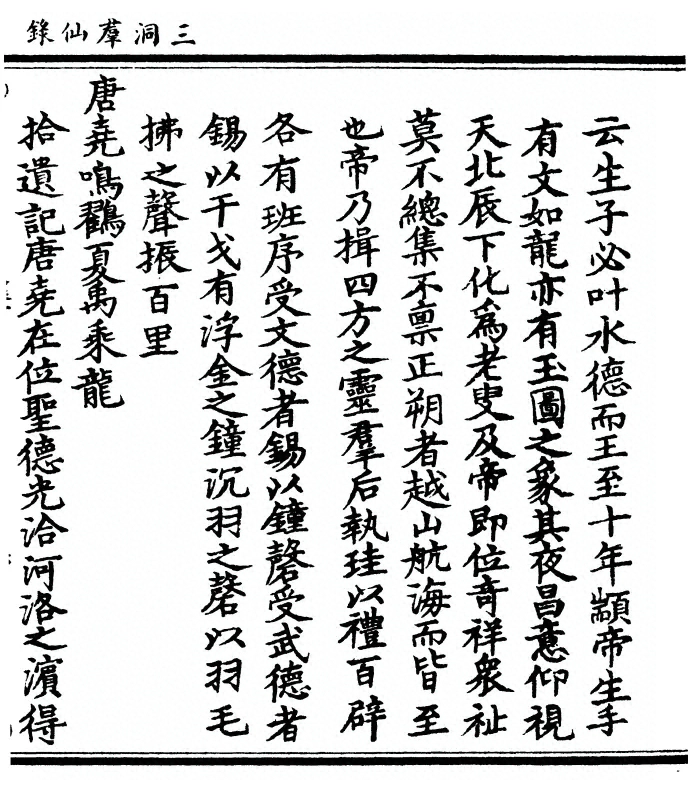 三洞羣仙錄
云生子必叶水德而王至十年顓帝生手
有文如龍亦有玉圖之象其夜昌意仰視
天北辰下化為老叟及帝即位竒祥衆祉
莫不總集不禀正朔者越山航海而皆至
也帝乃揖四方之靈羣后執珪以禮百辟
各有班序受文德者錫以鐘磬受武德者
錫以干戈有浮金之鐘沉羽之磬以羽毛
拂之聲振百里
唐堯鳴鸛夏禹乘龍
拾遺記唐堯在位聖德光洽河洛之濱得